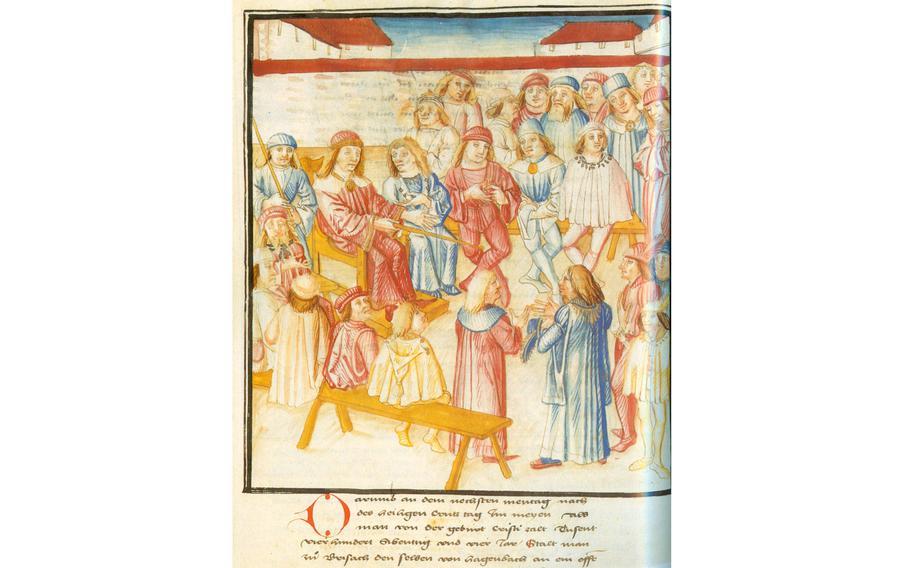 Darumb an dem nechsten mentag nach
des heiligen Crutz tag Im meyen Als
man von der geburt Cristi zalt Tusent
vier hundert Sibentzig und vier Jar Stalt man
zu Brisach den selben von hagenbach an ein offē